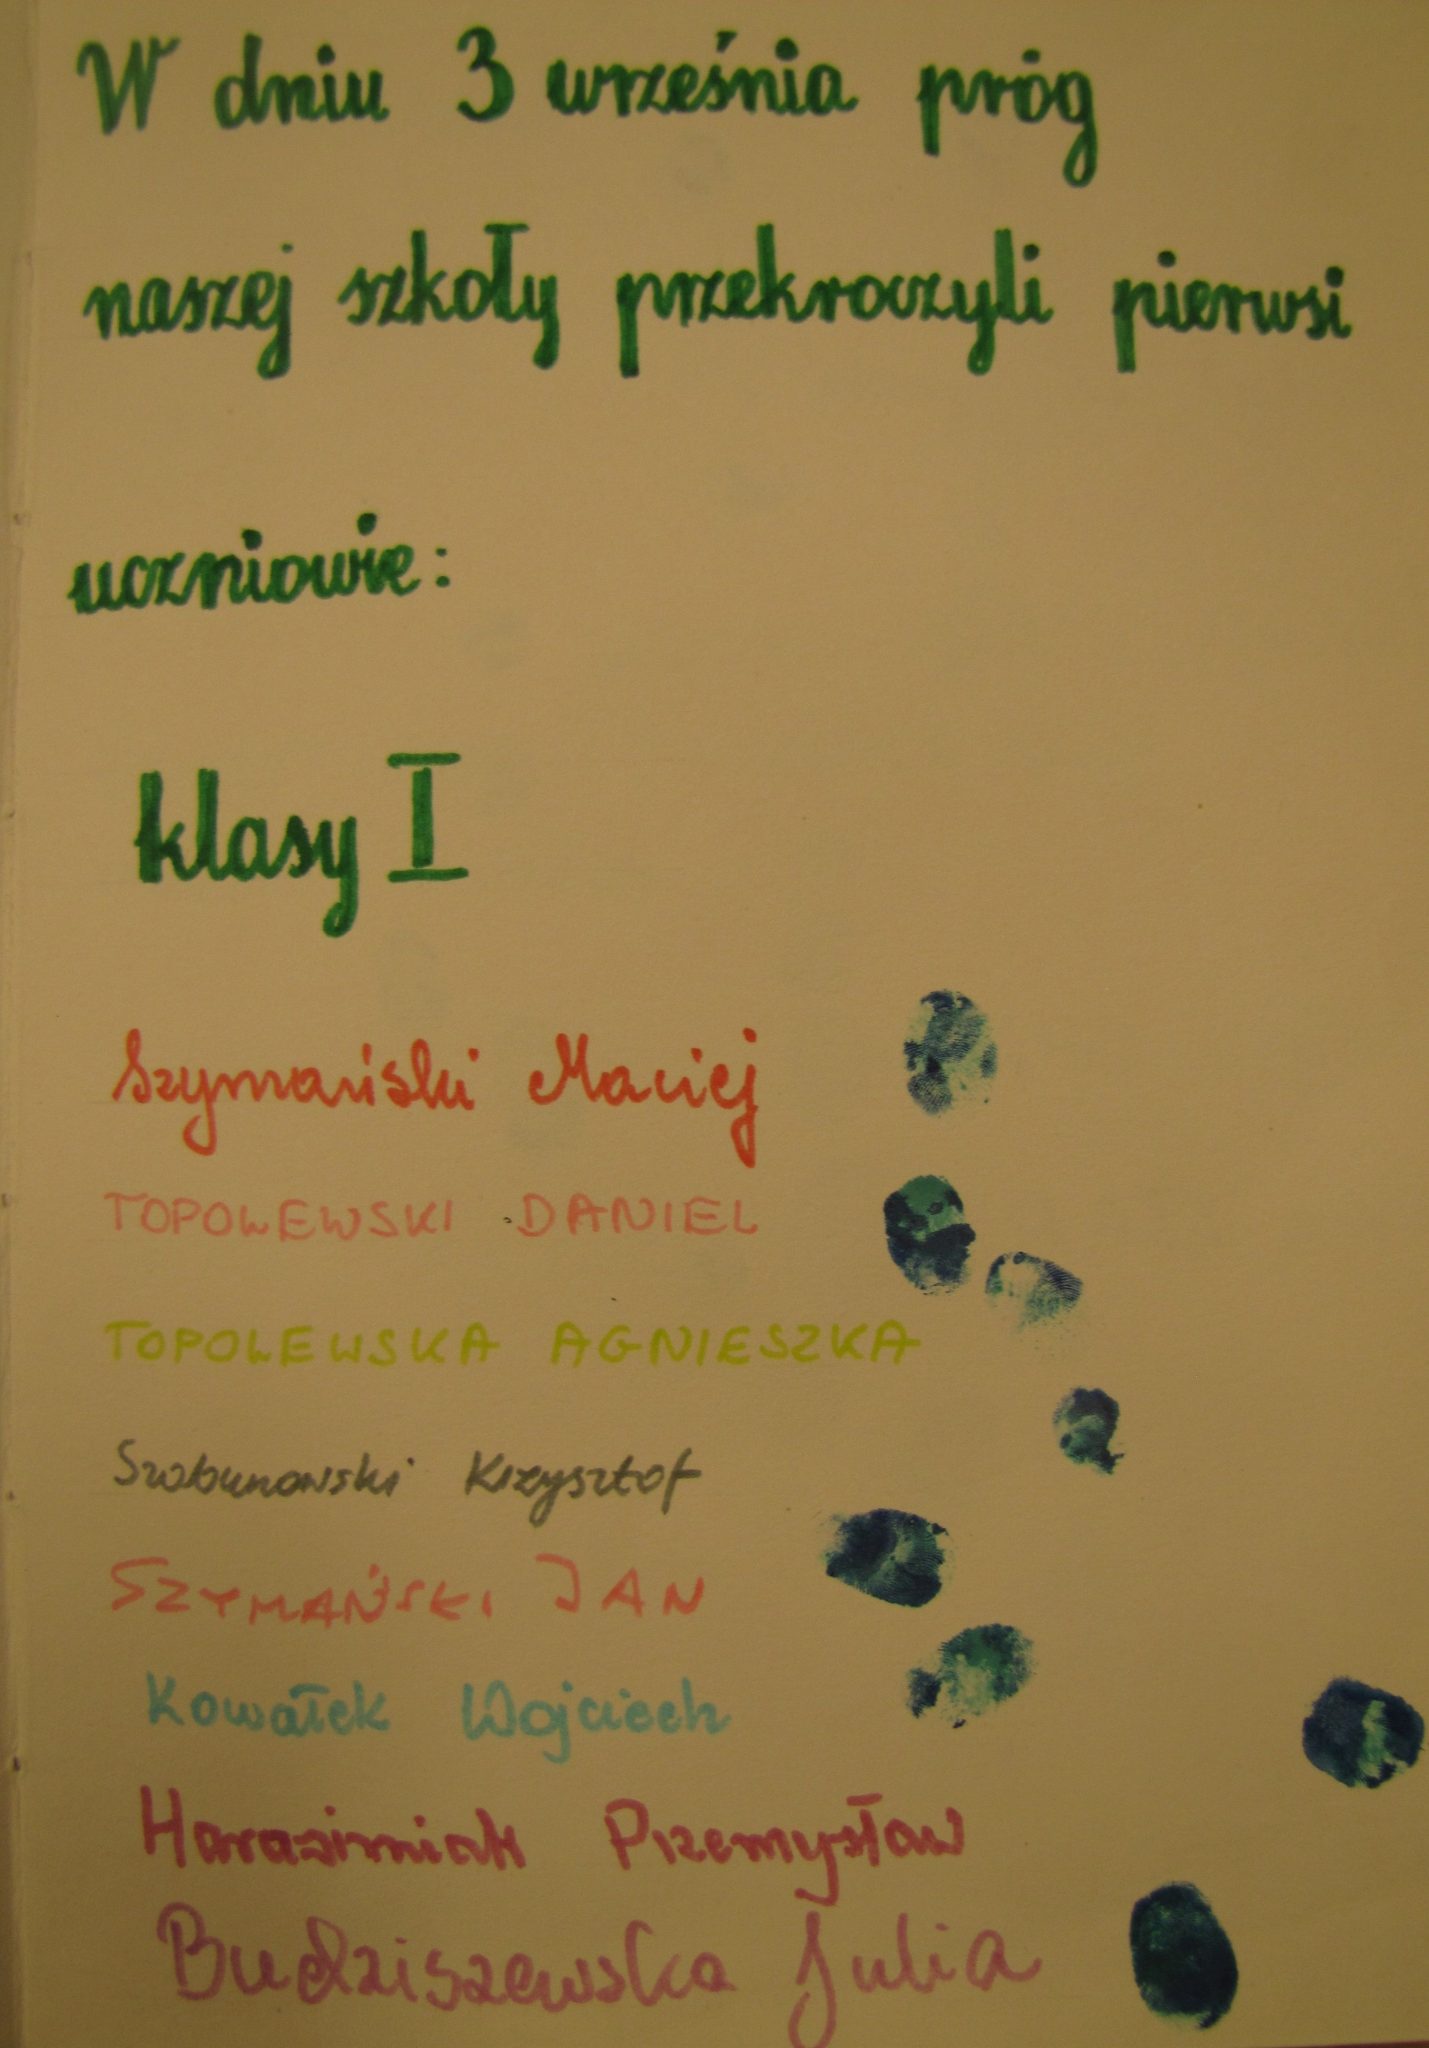 W dniu 3 września próg
naszej szkoły przekroczyli pierwsi
uczniowie:
klasy I
Szymański Maciej
TOPOLEWSKI DANIEL
TOPOLEWSKA AGNIESZKA
Krzysztof
SZYMAŃSKI JAN
Kowałek Wojciech
Harazimiak Przemysław
Budziszewska Julia